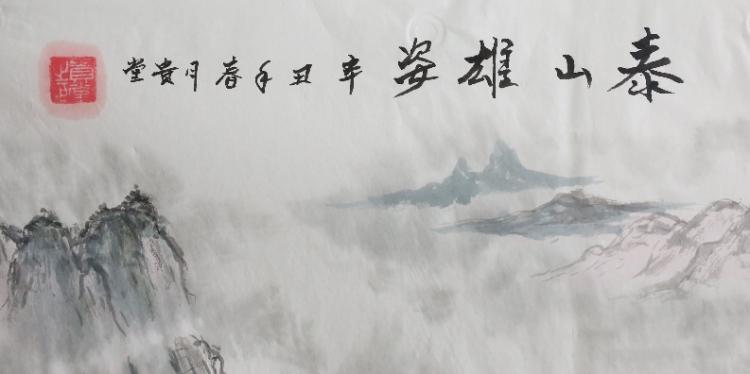 泰山雄姿 辛丑年春月贵堂